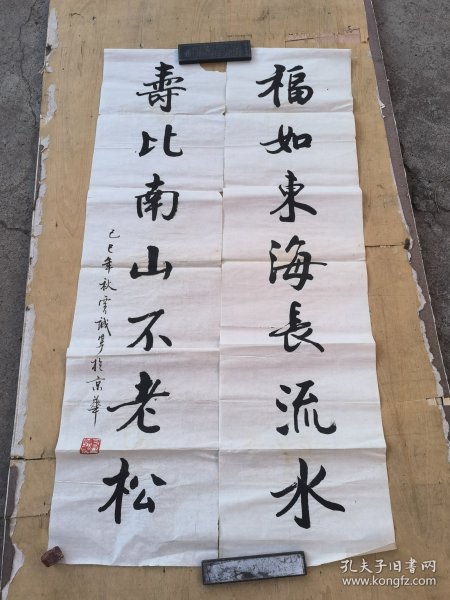 福如東海長流水
壽比南山不老松
己巳年秋雲誠學於京華
孔夫子旧书网
www.kongfz.com